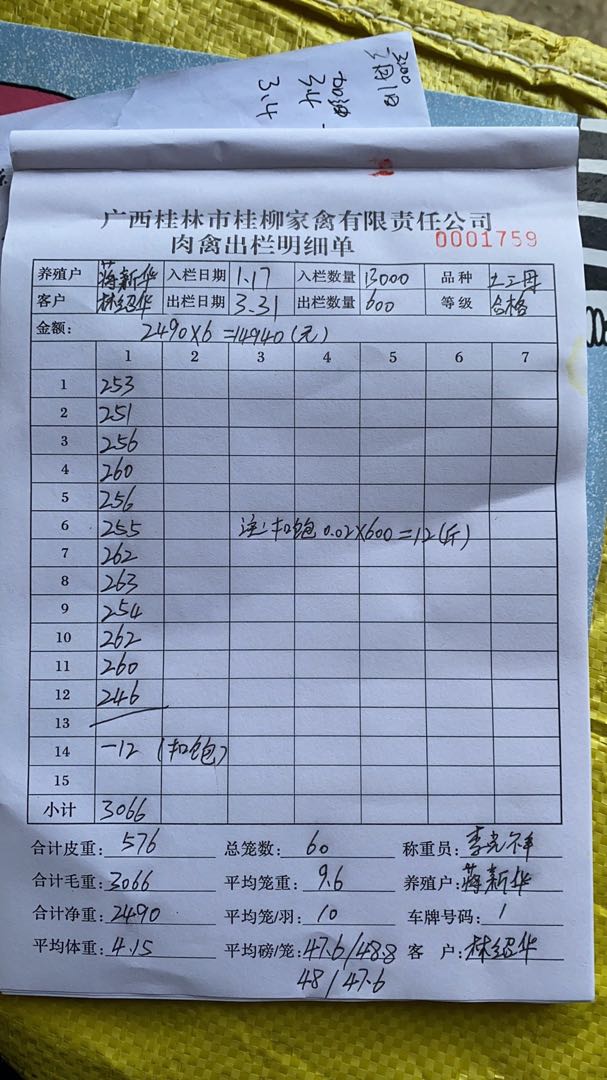 3.4
广西桂林市桂柳家禽有限责任公司
肉禽出栏明细单 0001759
养殖户 蒋新华 入栏日期 1.17 入栏数量 13000 品种 土二母
客户 林绍华 出栏日期 3.31 出栏数量 600 等级 合格
金额: 2490×6=14940(元)
1 2 3 4 5 6 7
1 253
2 251
3 256
4 260
5 256
6 255 注:扣饱0.02×600=12(斤)
7 262
8 263
9 254
10 262
11 260
12 246
13
14 -12 (扣饱)
15
小计 3066
合计皮重: 576 总笼数: 60 称重员: 李光祥
合计毛重: 3066 平均笼重: 9.6 养殖户: 蒋新华
合计净重: 2490 平均笼/羽: 10 车牌号码: 1
平均体重: 4.15 平均磅/笼: 47.6/48.8 客户: 林绍华
48/47.6